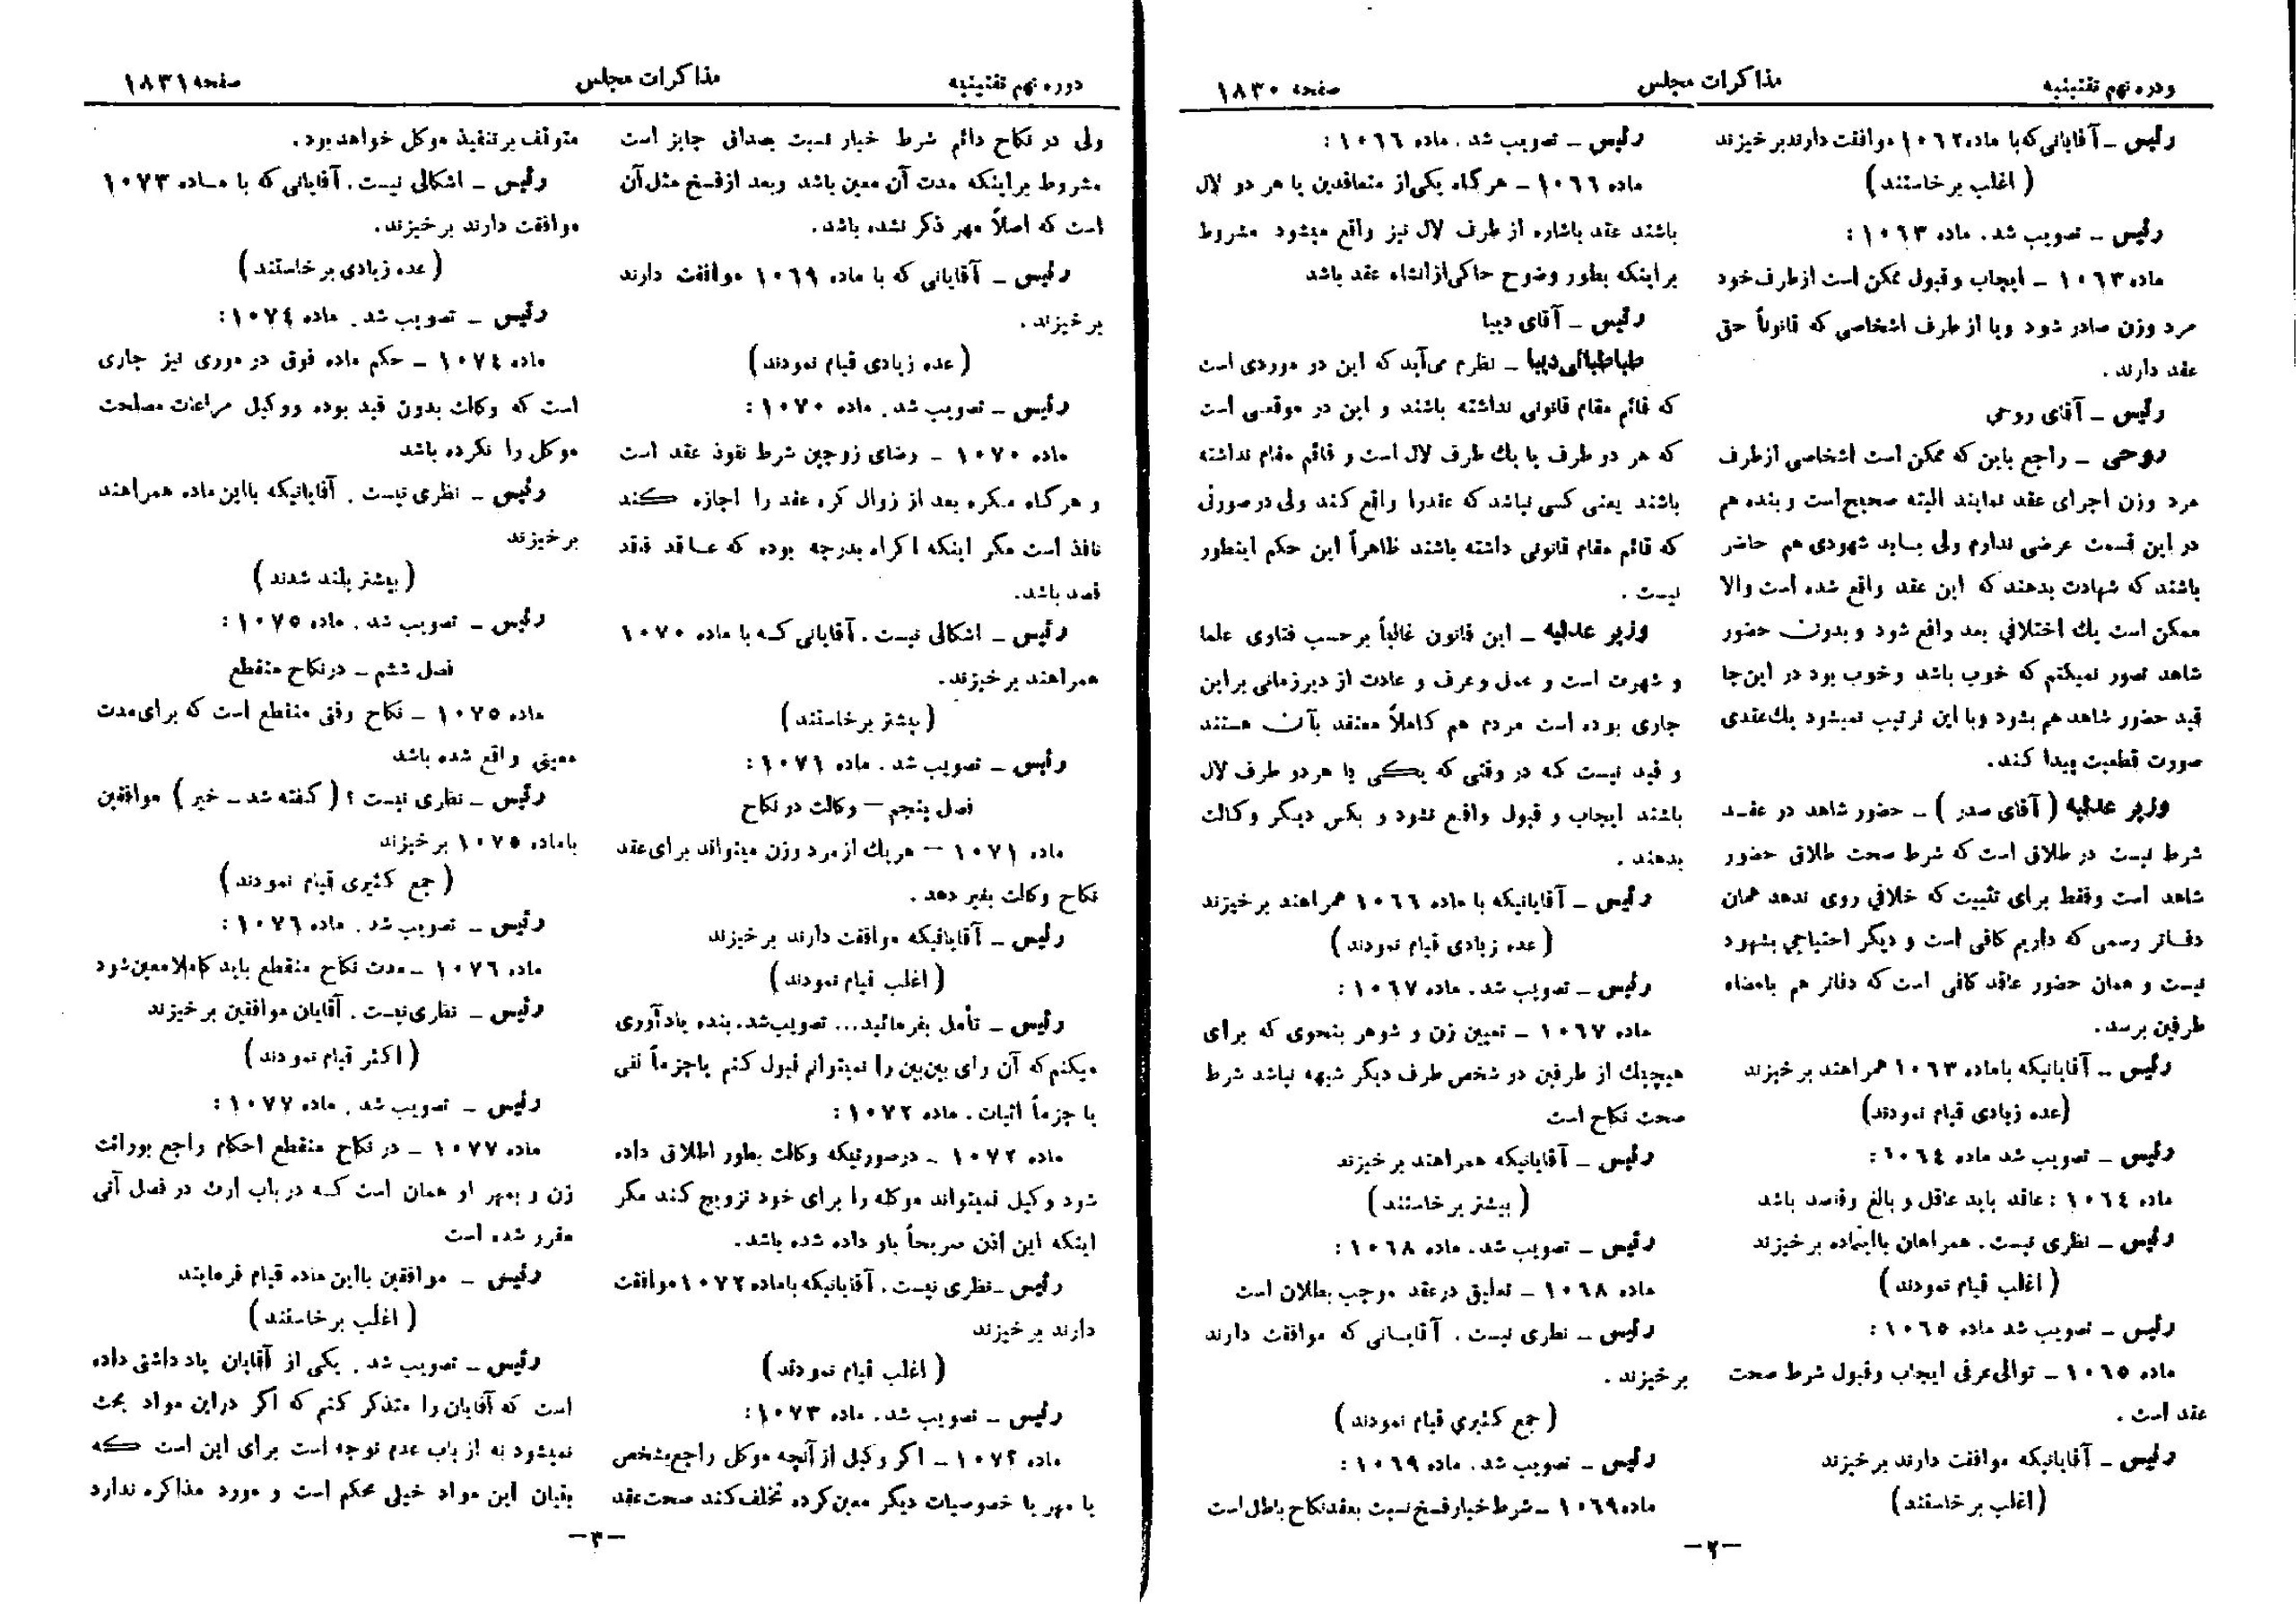 ودره نهم تقنینیه
مذاکرات مجلس
صفحه ۱۸۳۰
رئیس ـ آقایانی که با ماده ۱۰۶۲ موافقت دارند برخیزند
( اغلب برخاستند )
رئیس ـ تصویب شد . ماده ۱۰۶۳ :
ماده ۱۰۶۳ ـ ایجاب و قبول ممکن است از طرف خود
مرد وزن صادر شود ویا از طرف اشخاصی که قانوناً حق
عقد دارند .
رئیس ـ آقای روحی
روحی ـ راجع باین که ممکن است اشخاصی از طرف
مرد وزن اجرای عقد نمایند البته صحیح است و بنده هم
در این قسمت عرضی ندارم ولی بـاید شهودی هم حاضر
باشند که شهادت بدهند که این عقد واقع شده است والا
ممکن است یك اختلافی بعد واقع شود و بدون حضور
شاهد تصور نمیکنم که خوب باشد وخوب بود در این‌جا
قید حضور شاهد هم بشود وبا این ترتیب نمیشود یك‌عقدی
صورت قطعیت پیدا کند .
وزیر عدلیه ( آقای صدر ) ـ حضور شاهد در عقـد
شرط نیست در طلاق است که شرط صحت طلاق حضور
شاهد است وفقط برای تثبیت که خلافی روی ندهد همان
دفـاتر رسمی که داریم کافی است و دیگر احتیاجی بشهود
نیست و همان حضور عاقد کافی است که دفاتر هم بامضاء
طرفین برسد .
رئیس ـ آقایانیکه باماده ۱۰۶۳ همراهند برخیزند
(عده زیادی قیام نمودند)
رئیس ـ تصویب شد ماده ۱۰۶۴ :
ماده ۱۰۶۴ : عاقد باید عاقل و بالغ وقاصد باشد
رئیس ـ نظری نیست . همراهان بااینماده برخیزند
( اغلب قیام نمودند )
رئیس ـ تصویب شد ماده ۱۰۶۵ :
ماده ۱۰۶۵ ـ توالی عرفی ایجاب وقبول شرط صحت
عقد است .
رئیس ـ آقایانیکه موافقت دارند برخیزند
(اغلب برخاستند)
رئیس ـ تصویب شد . ماده ۱۰۶۶ :
ماده ۱۰۶۶ ـ هرگاه یکی از متعاقدین یا هر دو لال
باشند عقد باشاره از طرف لال نیز واقع میشود مشروط
بر اینکه بطور وضوح حاکی از انشاء عقد باشد
رئیس ـ آقای دیبا
طباطبائی‌دیبا ـ نظرم می‌آید که این در موردی است
که قائم مقام قانونی نداشته باشند و این در موقعی است
که هر دو طرف یا یك طرف لال است و قائم مقام نداشته
باشند یعنی کسی نباشد که عقدرا واقع کند ولی در صورتی
که قائم مقام قانونی داشته باشند ظاهراً این حکم اینطور
نیست .
وزیر عدلیه ـ این قانون غالباً برحسب فتاوی علما
و شهرت است و عمل وعرف و عادت از دیرزمانی براین
جاری بوده است مردم هم کاملاً معتقد بآن هستند
و قید نیست که در وقتی که یکی یا هردو طرف لال
باشند ایجاب و قبول واقع نشود و بکس دیگر وکالت
بدهند .
رئیس ـ آقایانیکه با ماده ۱۰۶۶ همراهند برخیزند
( عده زیادی قیام نمودند )
رئیس ـ تصویب شد . ماده ۱۰۶۷ :
ماده ۱۰۶۷ ـ تعیین زن و شوهر بنحوی که برای
هیچیك از طرفین در شخص طرف دیگر شبهه نباشد شرط
صحت نکاح است
رئیس ـ آقایانیکه همراهند برخیزند
( بیشتر برخاستند )
رئیس ـ تصویب شد . ماده ۱۰۶۸ :
ماده ۱۰۶۸ ـ تعلیق درعقد موجب بطلان است
رئیس ـ نظری نیست . آقایـانی که موافقت دارند
برخیزند .
( جمع کثیری قیام نمودند )
رئیس ـ تصویب شد . ماده ۱۰۶۹ :
ماده ۱۰۶۹ ـ شرط خیار فسخ نسبت بعقدنکاح باطل است
ـ۲ـ
دوره نهم تقنینیه
مذاکرات مجلس
صفحه ۱۸۳۱
ولی در نکاح دائم شرط خیار نسبت بصداق جایز است
مشروط براینکه مدت آن معین باشد وبعد ازفسخ مثل آن
است که اصلاً مهر ذکر نشده باشد .
رئیس ـ آقایانی که با ماده ۱۰۶۹ موافقت دارند
برخیزند .
( عده زیادی قیام نمودند )
رئیس ـ تصویب شد . ماده ۱۰۷۰ :
ماده ۱۰۷۰ ـ رضای زوجین شرط نفوذ عقد است
و هرگاه مکره بعد از زوال کره عقد را اجازه کند
نافذ است مگر اینکه اکراه بدرجه بوده که عـاقد فاقد
قصد باشد .
رئیس ـ اشکالی نیست . آقایانی کـه با ماده ۱۰۷۰
همراهند برخیزند .
( بیشتر برخاستند )
رئیس ـ تصویب شد . ماده ۱۰۷۱ :
فصل پنجم — وکالت در نکاح
ماده ۱۰۷۱ — هریك از مرد وزن میتواند برای عقد
نکاح وکالت بغیر دهد .
رئیس ـ آقایانیکه موافقت دارند برخیزند
( اغلب قیام نمودند )
رئیس ـ تأمل بفرمائید... تصویب‌شد . بنده یادآوری
میکنم که آن رای بین‌بین را نمیتوانم قبول کنم یاجزماً نفی
یا جزماً اثبات . ماده ۱۰۷۲ :
ماده ۱۰۷۲ ـ درصورتیکه وکالت بطور اطلاق داده
شود وکیل نمیتواند موکله را برای خود تزویج کند مگر
اینکه این اذن صریحاً باو داده شده باشد .
رئیس ـ نظری نیست . آقایانیکه باماده ۱۰۷۲ موافقت
دارند برخیزند
( اغلب قیام نمودند )
رئیس ـ تصویب شد . ماده ۱۰۷۳ :
ماده ۱۰۷۳ ـ اگر وکیل از آنچه موکل راجع‌بشخص
یا مهر یا خصوصیات دیگر معین‌کرده تخلف کند صحت‌عقد
متوقف برتنفیذ موکل خواهدبود .
رئیس ـ اشکالی نیست . آقایانی که با مـاده ۱۰۷۳
موافقت دارند برخیزند .
( عده زیادی برخاستند )
رئیس ـ تصویب شد . ماده ۱۰۷۴ :
ماده ۱۰۷۴ ـ حکم ماده فوق در موری نیز جاری
است که وکالت بدون قید بوده ووکیل مراعات مصلحت
موکل را نکرده باشد
رئیس ـ نظری نیست . آقایانیکه بااین‌ماده همراهند
برخیزند
( بیشتر بلند شدند )
رئیس ـ تصویب شد . ماده ۱۰۷۵ :
فصل ششم ـ درنکاح منقطع
ماده ۱۰۷۵ ـ نکاح وقتی منقطع است که برای‌مدت
معینی واقع شده باشد
رئیس ـ نظری نیست ؟ ( گفته شد ـ خیر ) موافقین
باماده ۱۰۷۵ برخیزند
( جمع کثیری قیام نمودند )
رئیس ـ تصویب شد . ماده ۱۰۷۶ :
ماده ۱۰۷۶ ـ مدت نکاح منقطع باید کاملا معین‌شود
رئیس ـ نظری‌نیست . آقایان موافقین برخیزند
( اکثر قیام نمودند )
رئیس ـ تصویب شد . ماده ۱۰۷۷ :
ماده ۱۰۷۷ ـ در نکاح منقطع احکام راجع بوراثت
زن و بمهر او همان است کـه درباب ارث در فصل آتی
مقرر شده است
رئیس ـ موافقین بااین ماده قیام فرمایند
( اغلب برخاستند )
رئیس ـ تصویب شد . یکی از آقایان یادداشتی داده
است که آقایان را متذکر کنم که اگر دراین مواد بحث
نمیشود نه از باب عدم توجه است برای این است که
بقیان این مواد خیلی محکم است و مورد مذاکره ندارد
ـ۳ـ